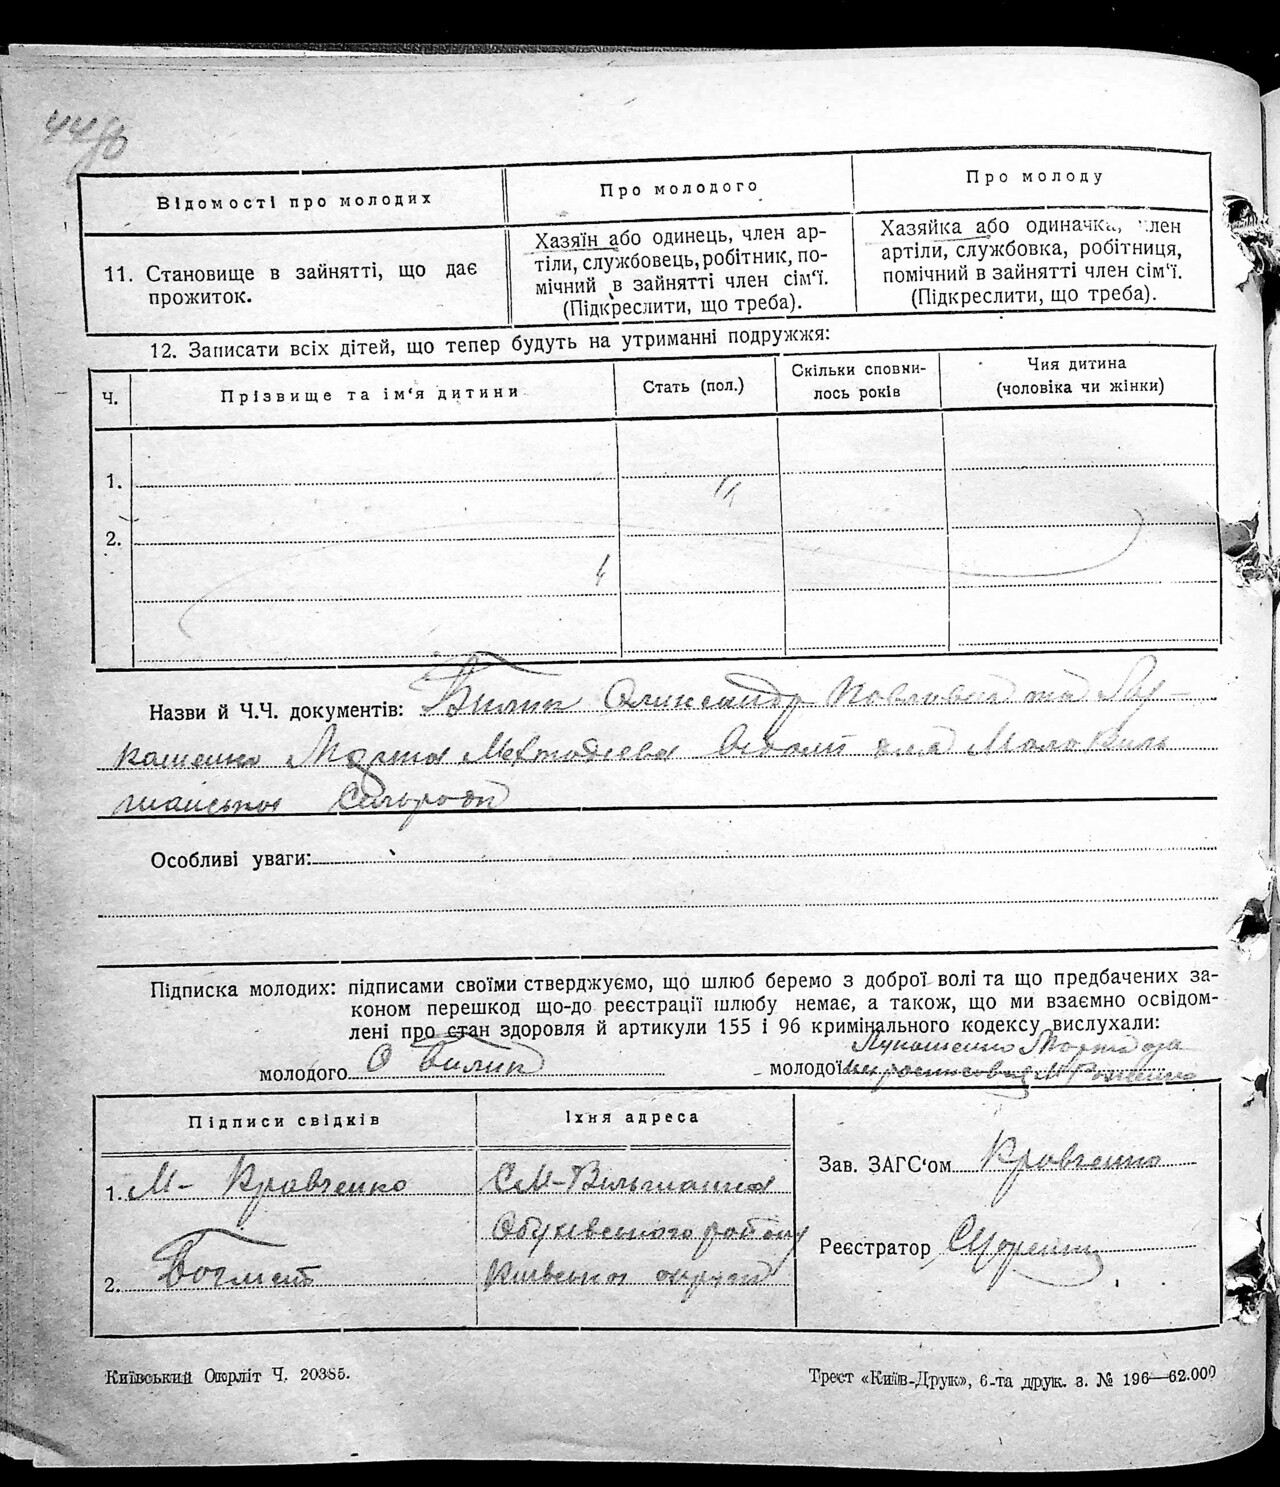 44
Відомості про молодих
Про молодого
Про молоду
11. Становище в зайнятті, що дає
прожиток.
Хазяїн або одинець, член ар-
тіли, службовець, робітник, по-
мічний в зайнятті член сім'ї.
(Підкреслити, що треба).
Хазяйка або одиначка, член
артіли, службовка, робітниця,
помічний в зайнятті член сім'ї.
(Підкреслити, що треба).
12. Записати всіх дітей, що тепер будуть на утриманні подружжя:
Ч.
Прізвище та ім'я дитини
Стать (пол.)
Скільки сповни-
лось років
Чия дитина
(чоловіка чи жінки)
1.
2.
Назви й Ч.Ч. документів: Билик Олександр Павлович та Лу-
кашенко Марта Мехтодієва Мало Виль
шанської Сільради
Особливі уваги:
Підписка молодих: підписами своїми стверджуємо, що шлюб беремо з доброї волі та що предбачених за-
коном перешкод що-до реєстрації шлюбу немає, а також, що ми взаємно освідом-
лені про стан здоровля й артикули 155 і 96 кримінального кодексу вислухали:
молодого О Билик
Лукашенко Марта
молодої
Підписи свідків
Їхня адреса
1. М- Кравченко
С М-Вильшанка
Обухівського району
2.
Київської округи
Зав. ЗАГС'ом Кравченко
Реєстратор
Київський Окрліт Ч. 20385.
Трест «Київ-Друк», 6-та друк. з. № 196—62.000